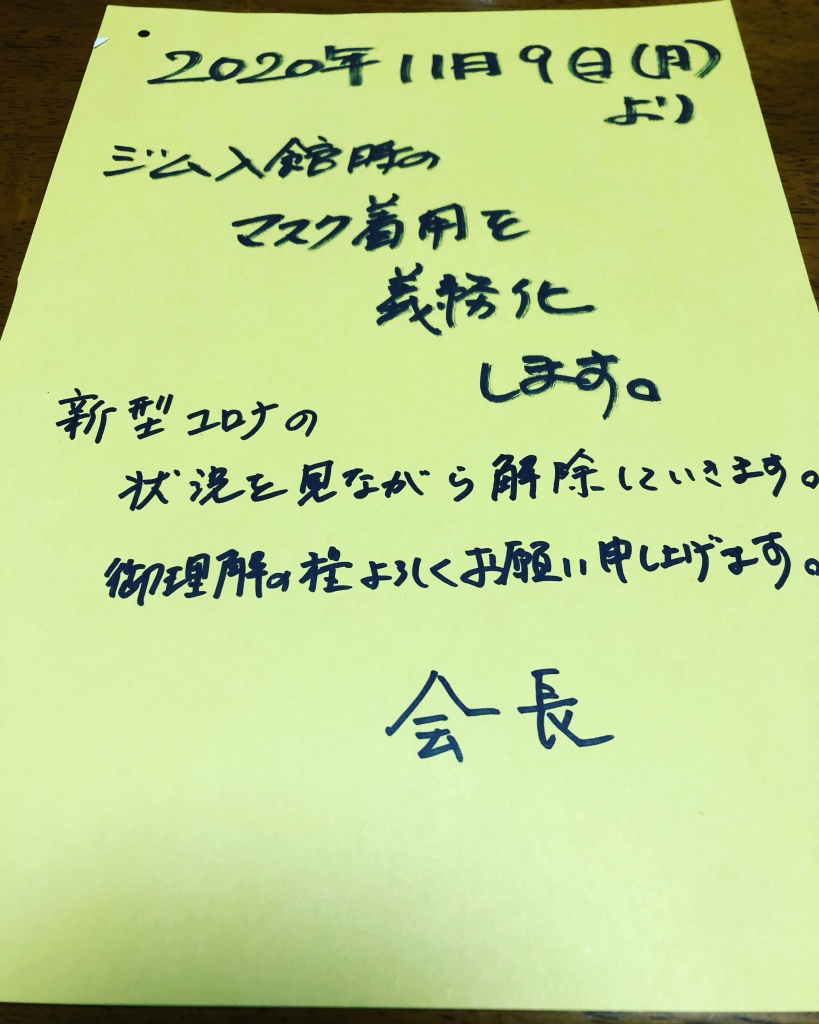 2020年11月9日(月)
より
ジム入館時の
マスク着用を
義務化
します。
新型コロナの
状況を見ながら解除していきます。
御理解の程よろしくお願い申し上げます。
会長